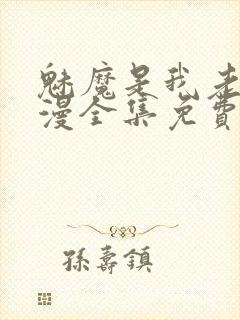 魅魔是我老
漫全集免費
孫壽鎮